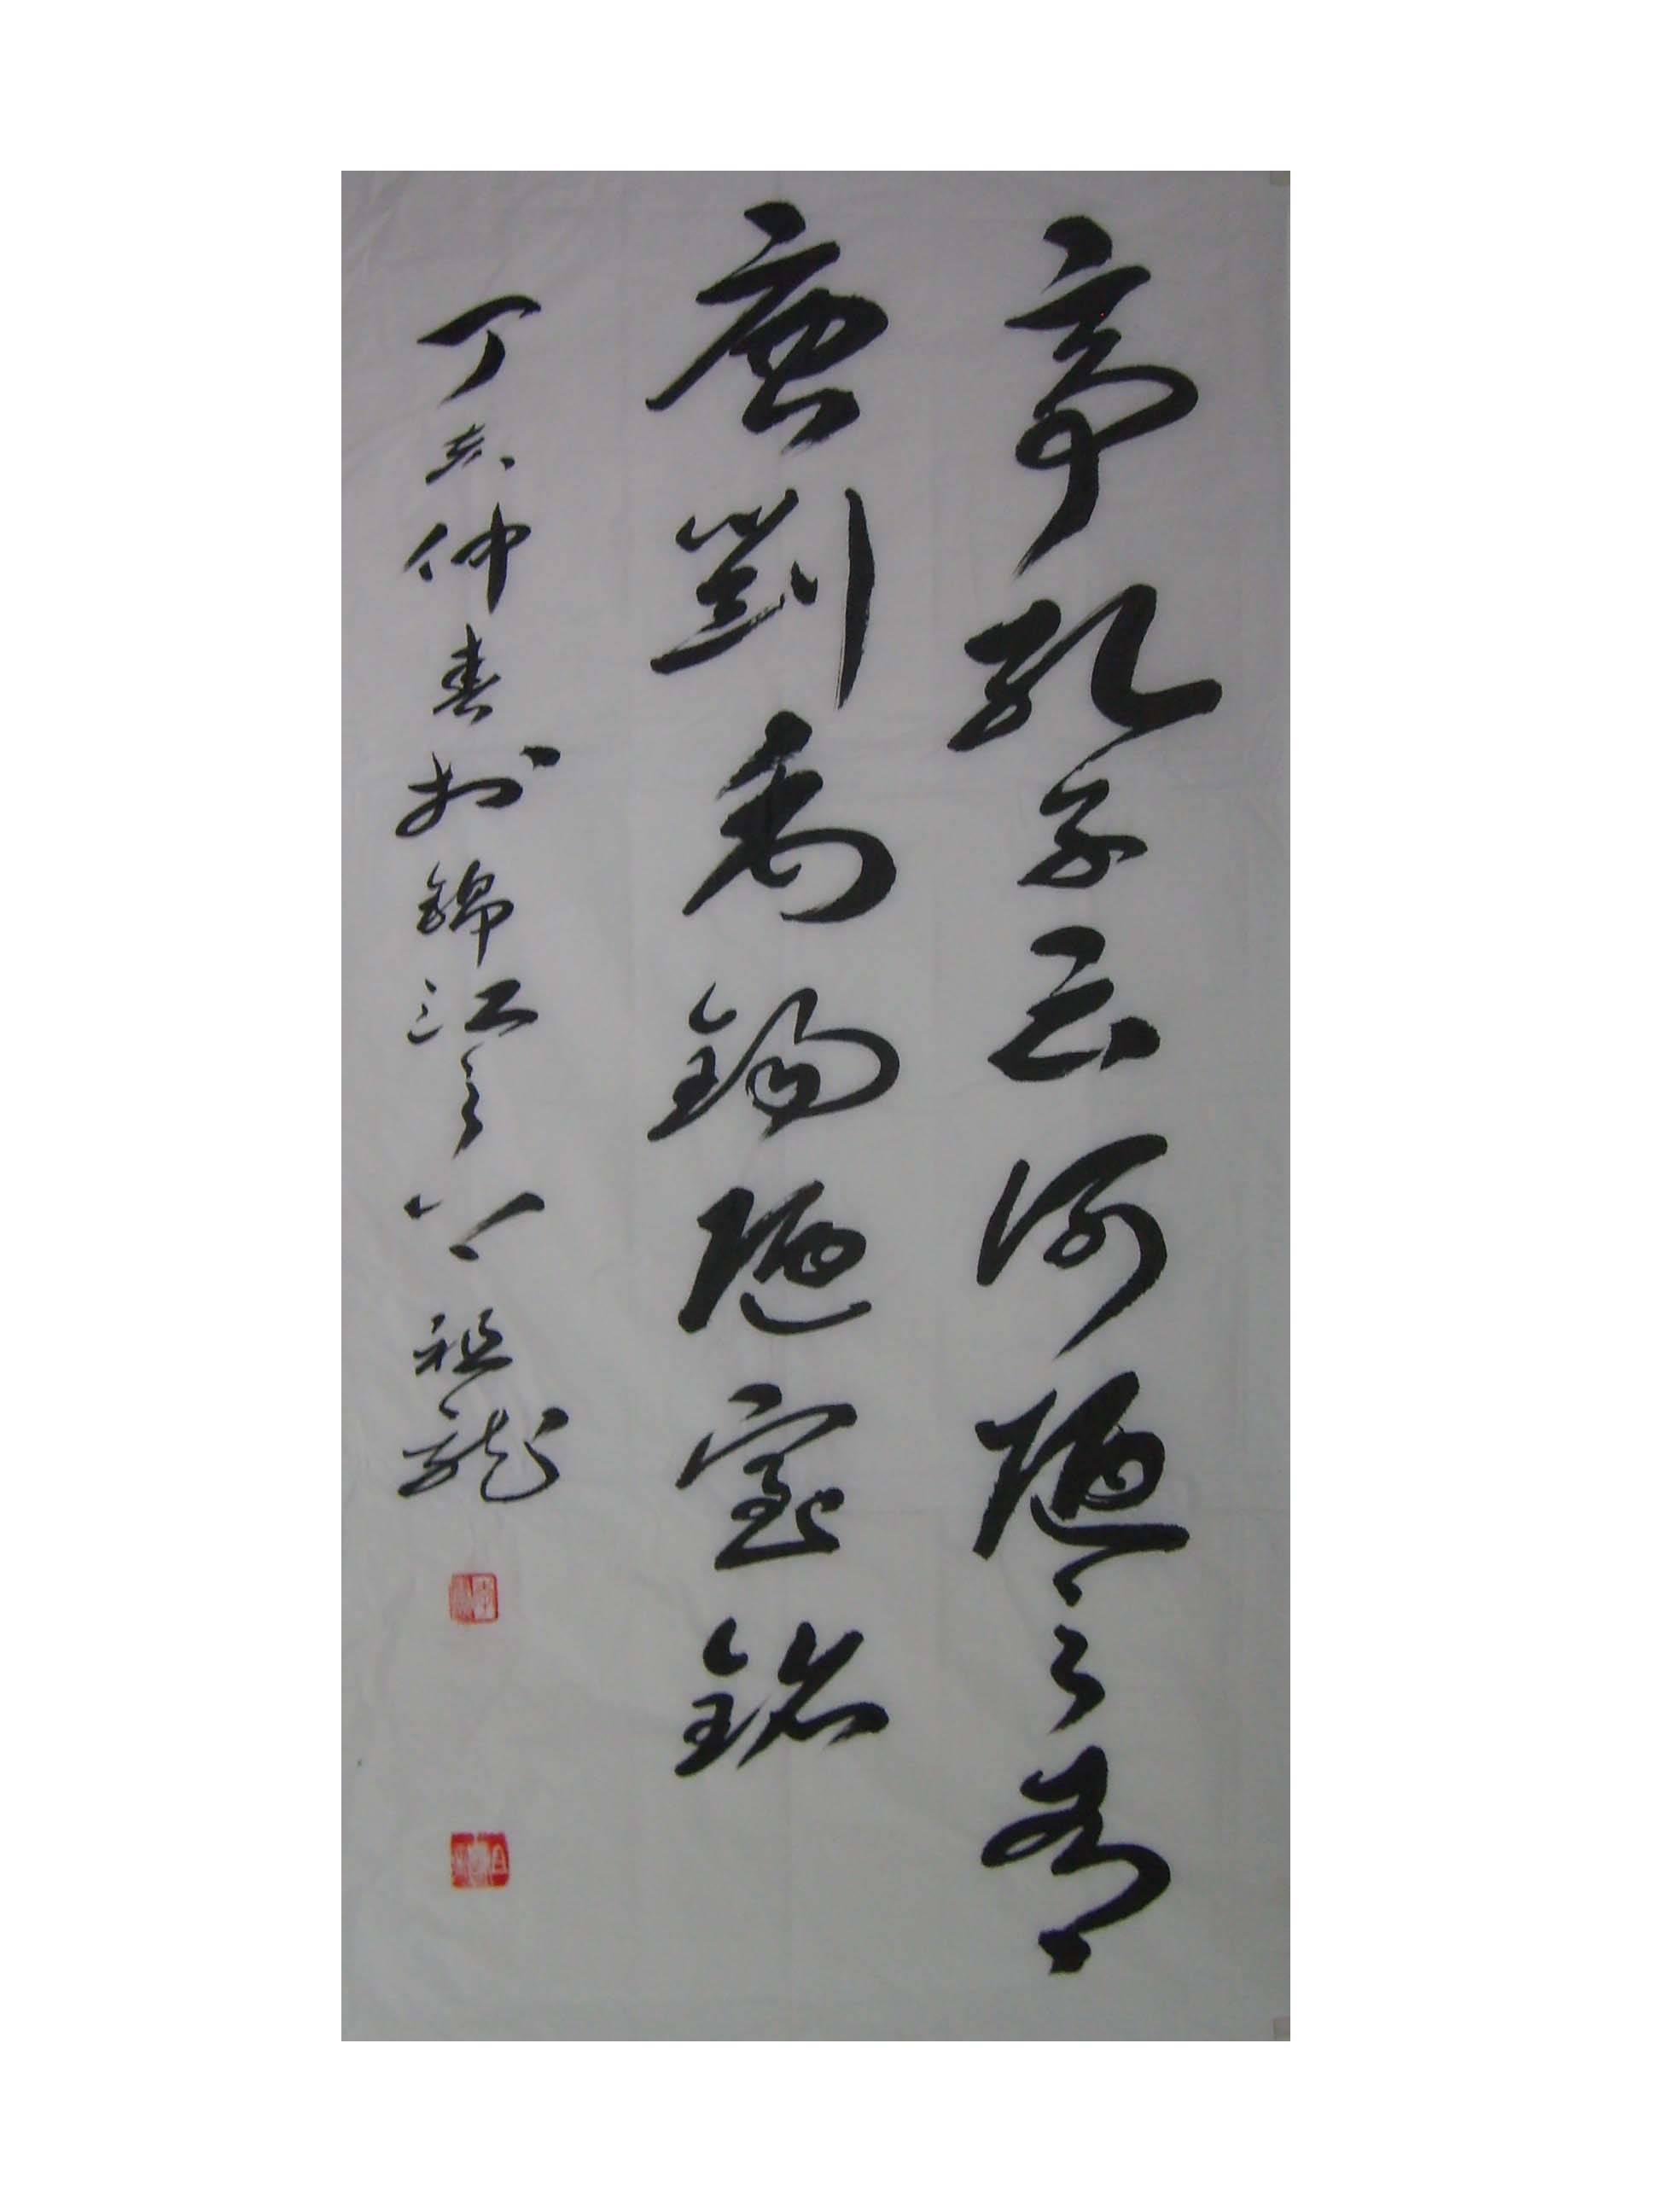 亭孔子云何陋之有
唐劉禹錫陋室銘
丁亥仲春於錦江之 祖龍